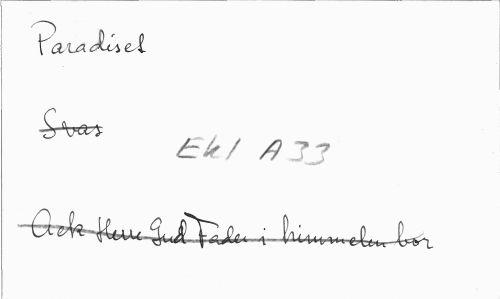 Paradiset
Svas
Ekl A33
Ack Herre Gud Fader i himmelen bor